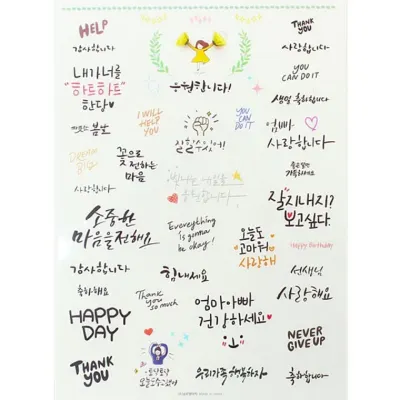 HELP
감사합니다
THANK
YOU
사랑합니다
내가너를
"하트하트"
한다
응원합니다!
YOU
CAN DO IT
생일 축하합니다
I WILL
HELP
YOU
YOU
CAN
DO IT
엄빠
사랑합니다
DREAM
BIG
꽃으로
전하는
마음
잘할수있어!
사랑합니다
잘지내지?
보고싶다.
소중한
마음을전해요
Everything
is gonna
be okay!
오늘도
고마워
사랑해
Happy Birthday
감사합니다
축하해요
힘내세요
선생님
사랑해요
Thank
you
so much
엄마아빠
건강하세요
HAPPY
DAY
NEVER
GIVE UP
THANK
YOU
토닥토닥
오늘도수고했어
우리가족 행복하자
축하합니다